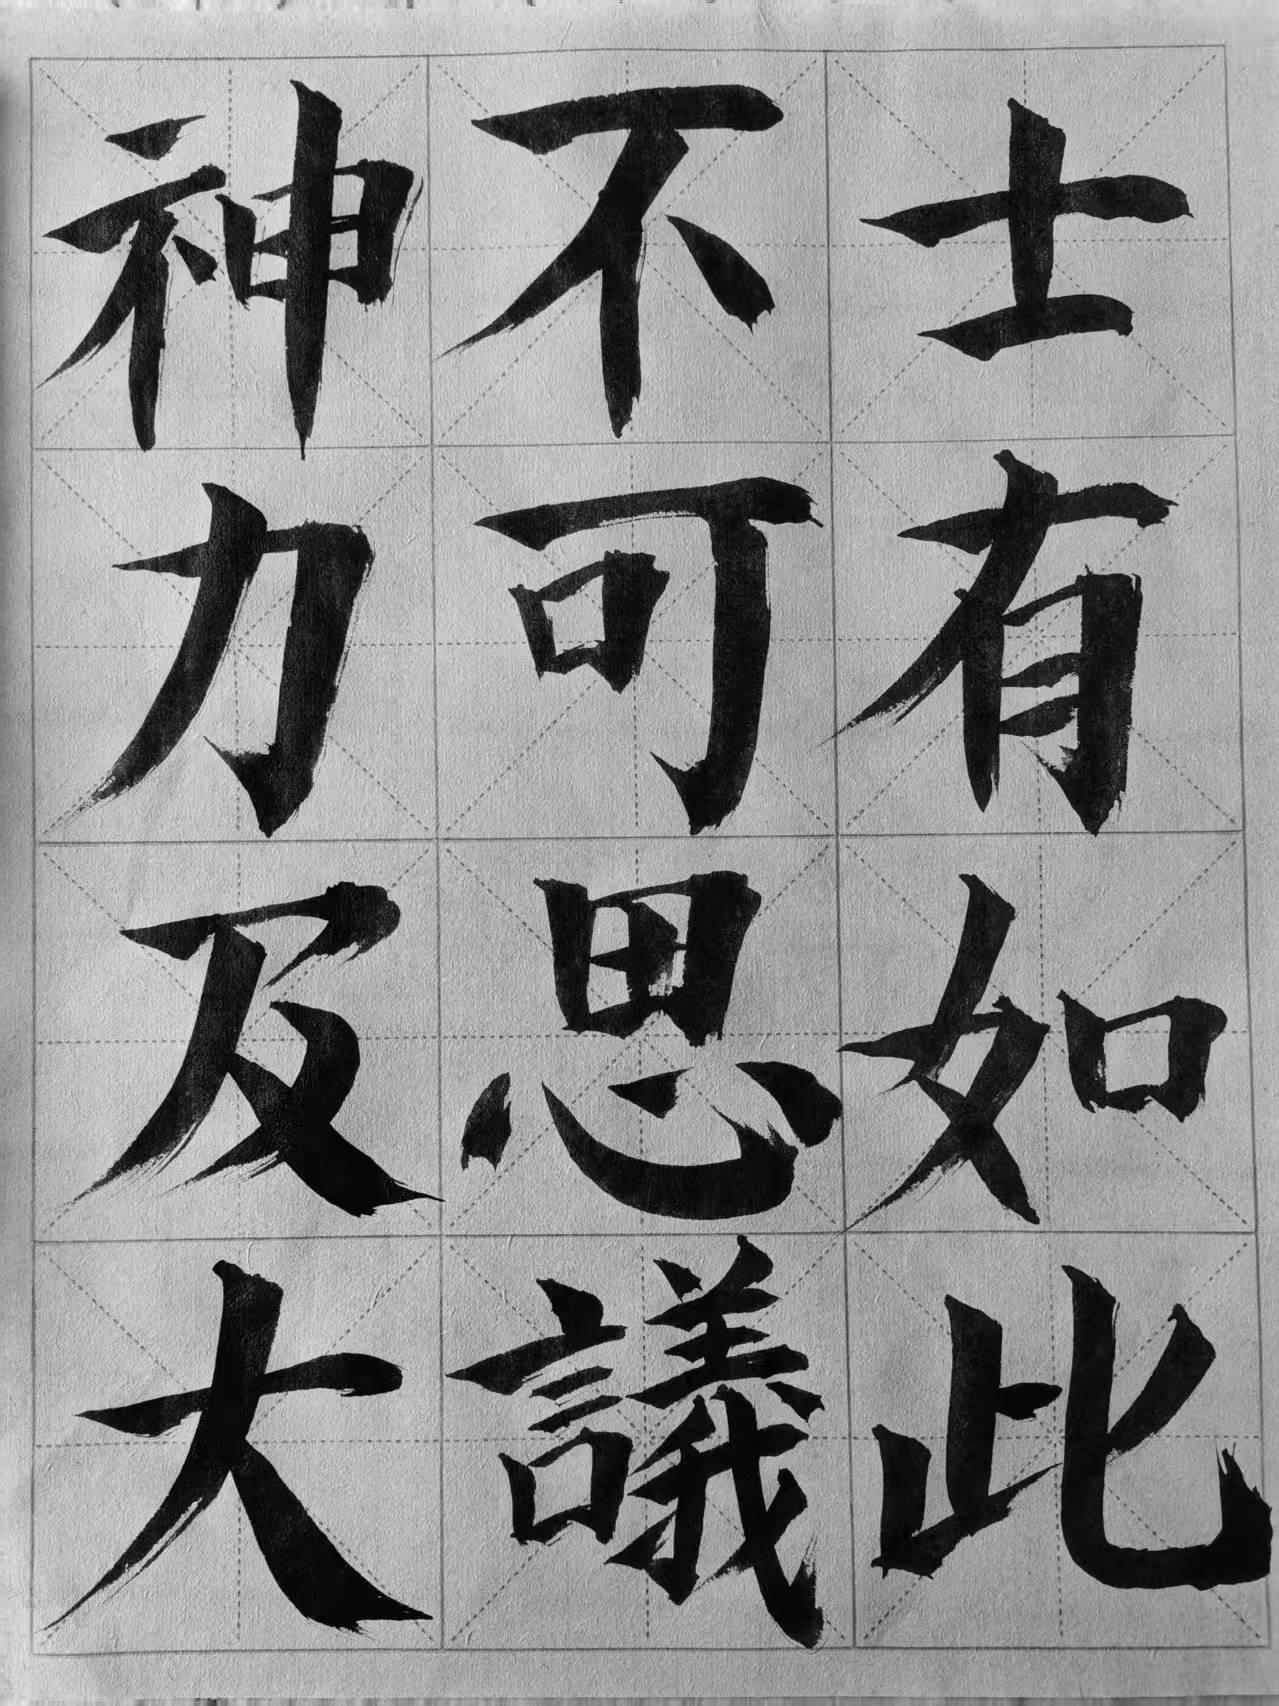 士有如此
不可思議
神力及大